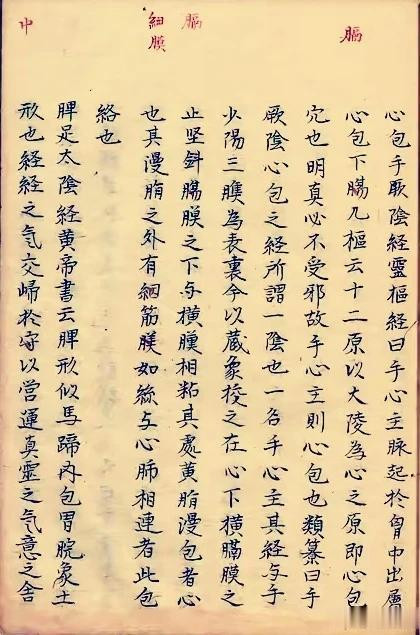 膈
心包手厥陰經靈樞經曰手心主脉起於胷中出屬
心包下膓几樞云十二原以大陵為心之原即心包
穴也明真心不受邪故手心主則心包也類纂曰手
厥陰心包之經所謂一陰也一名手心主其經与手
少陽三膲為表裏今以蔵象挍之在心下横膈膜之
膈
止坚斜膓膜之下与横膜相粘其處黄脂漫包者心
細膜
也其漫脂之外有細筋膜如絲与心肺相連者此包
絡也
脾足太陰経黄帝書云脾形似馬蹄内包胃脘象土
中
形也経経之气交歸於守以営運真靈之气意之舍